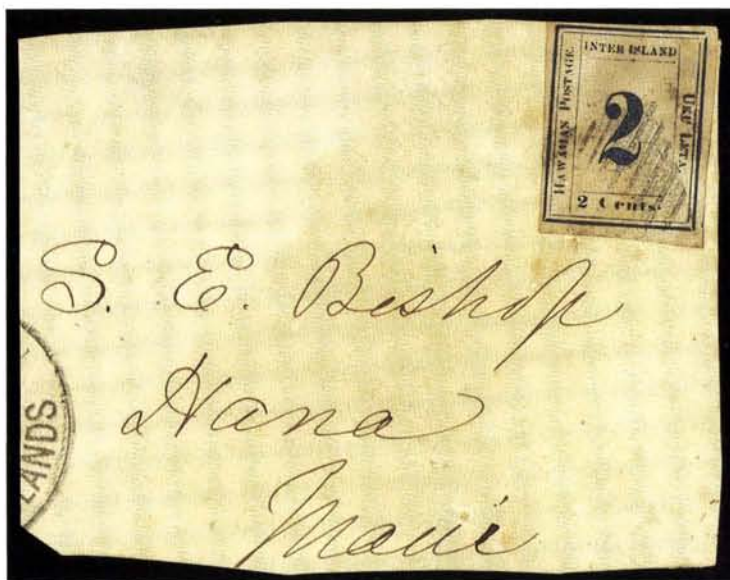 INTER ISLAND
HAWAIIAN POSTAGE.
2
UKU LETA.
2 Cents.
S. E. Bishop
Hana
Maui
LANDS